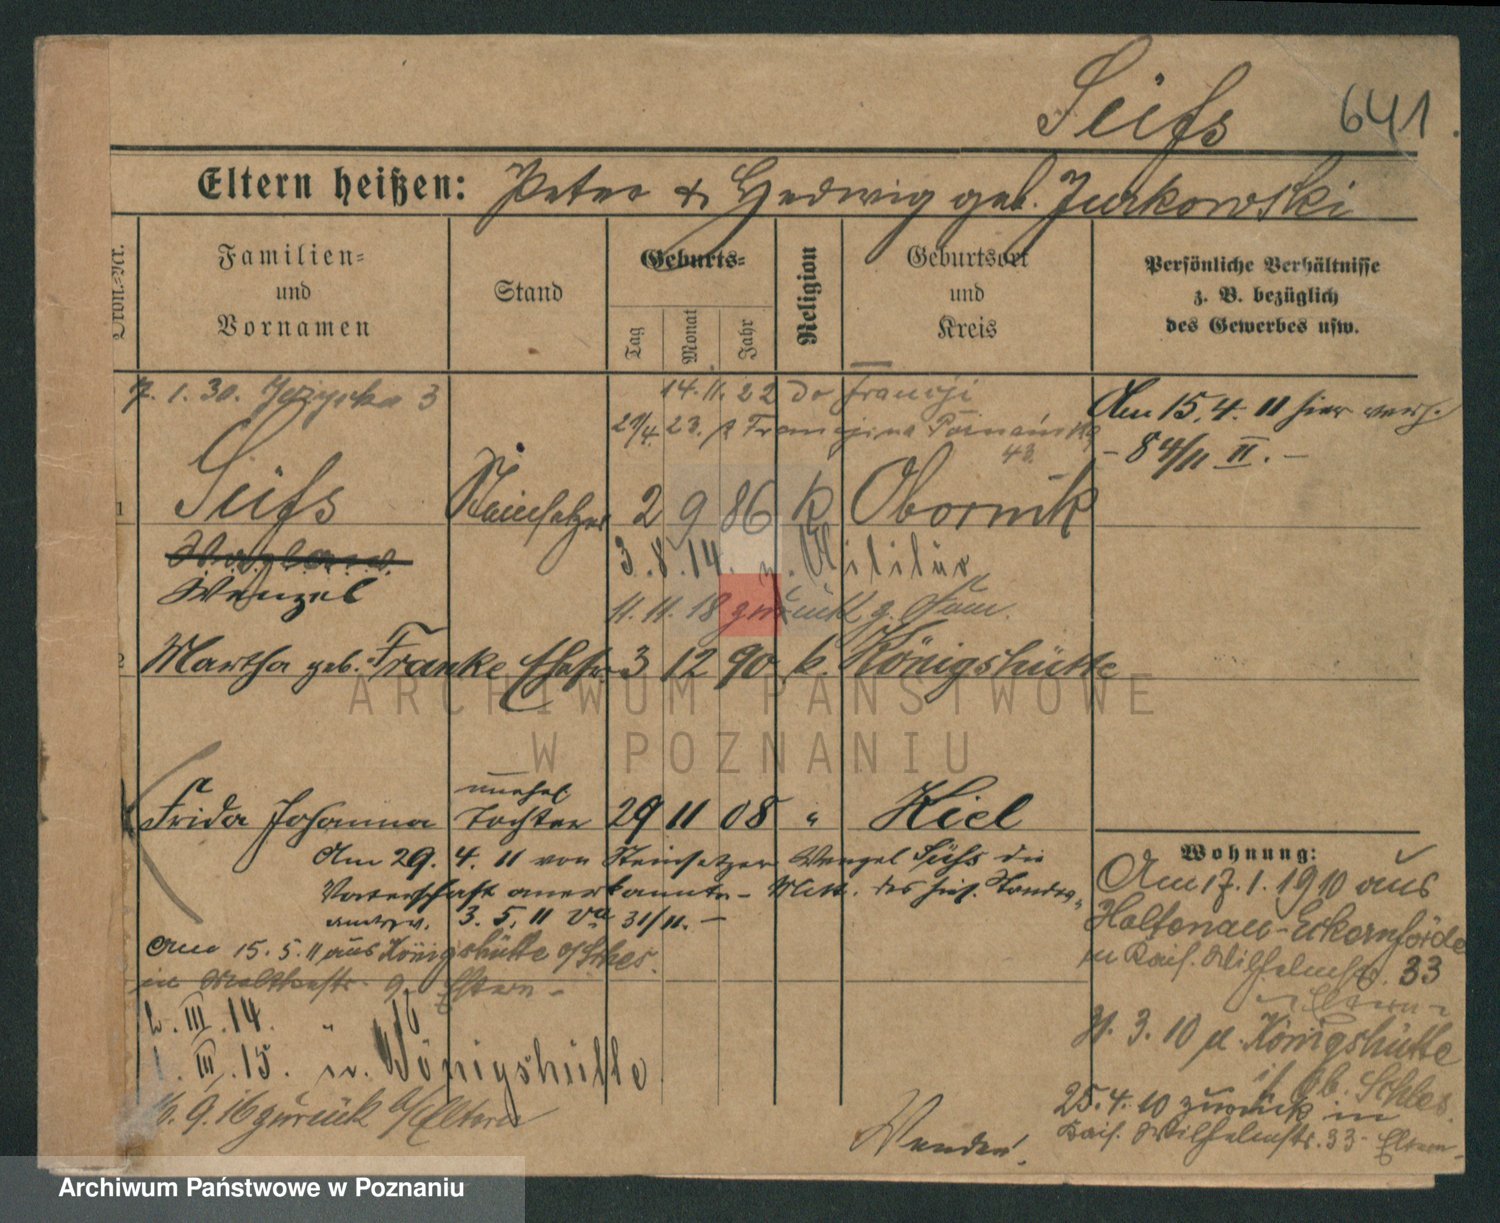 Süß 641.
Eltern heißen: Peter & Hedwig geb. Jurkowski
Familien=
und
Vornamen
Stand
Geburts=
Tag
Monat
Jahr
Religion
Geburtsort
und
Kreis
Persönliche Verhältnisse
z. B. bezüglich
des Gewerbes usw.
7. 1. 30. 3
14. 11. 22 do Francji
23. z Francji
Am 15. 4. 11 hier verh.
- 84/11 II. -
1 Süß Steinsetzer 2 9 86 k Obornik
Wenzel
3. 8. 14. z. Militär
11. 11. 18 zurück z. Fam.
2 Martha geb. Franke Ehefr. 3 12 90 k. Königshütte
unehel
Frida Johanna Tochter 29 11 08 " Kiel
Am 29. 4. 11 von Steinsetzer Wenzel Süß die
Vaterschaft anerkannt. - Mitt. des hies. Standes-
3. 5. 11 31/11. -
Am 15. 5. 11 aus Königshütte O/Schles.
in z. Eltern -
III. 14. " 16
1. III. 15. n. Königshütte
9. 16 zurück b/Eltern
Wohnung:
Am 17. 1. 1910 aus
Holtenau-Eckernförde
in Kais. Wilhelmstr. 33
z. Eltern -
3. 10 n. Königshütte
Ob. Schles.
25. 4. 10 zurück in
Kais. Wilhelmstr. 33 Eltern
Wenden!
ARCHIWUM PAŃSTWOWE
W POZNANIU
Archiwum Państwowe w Poznaniu